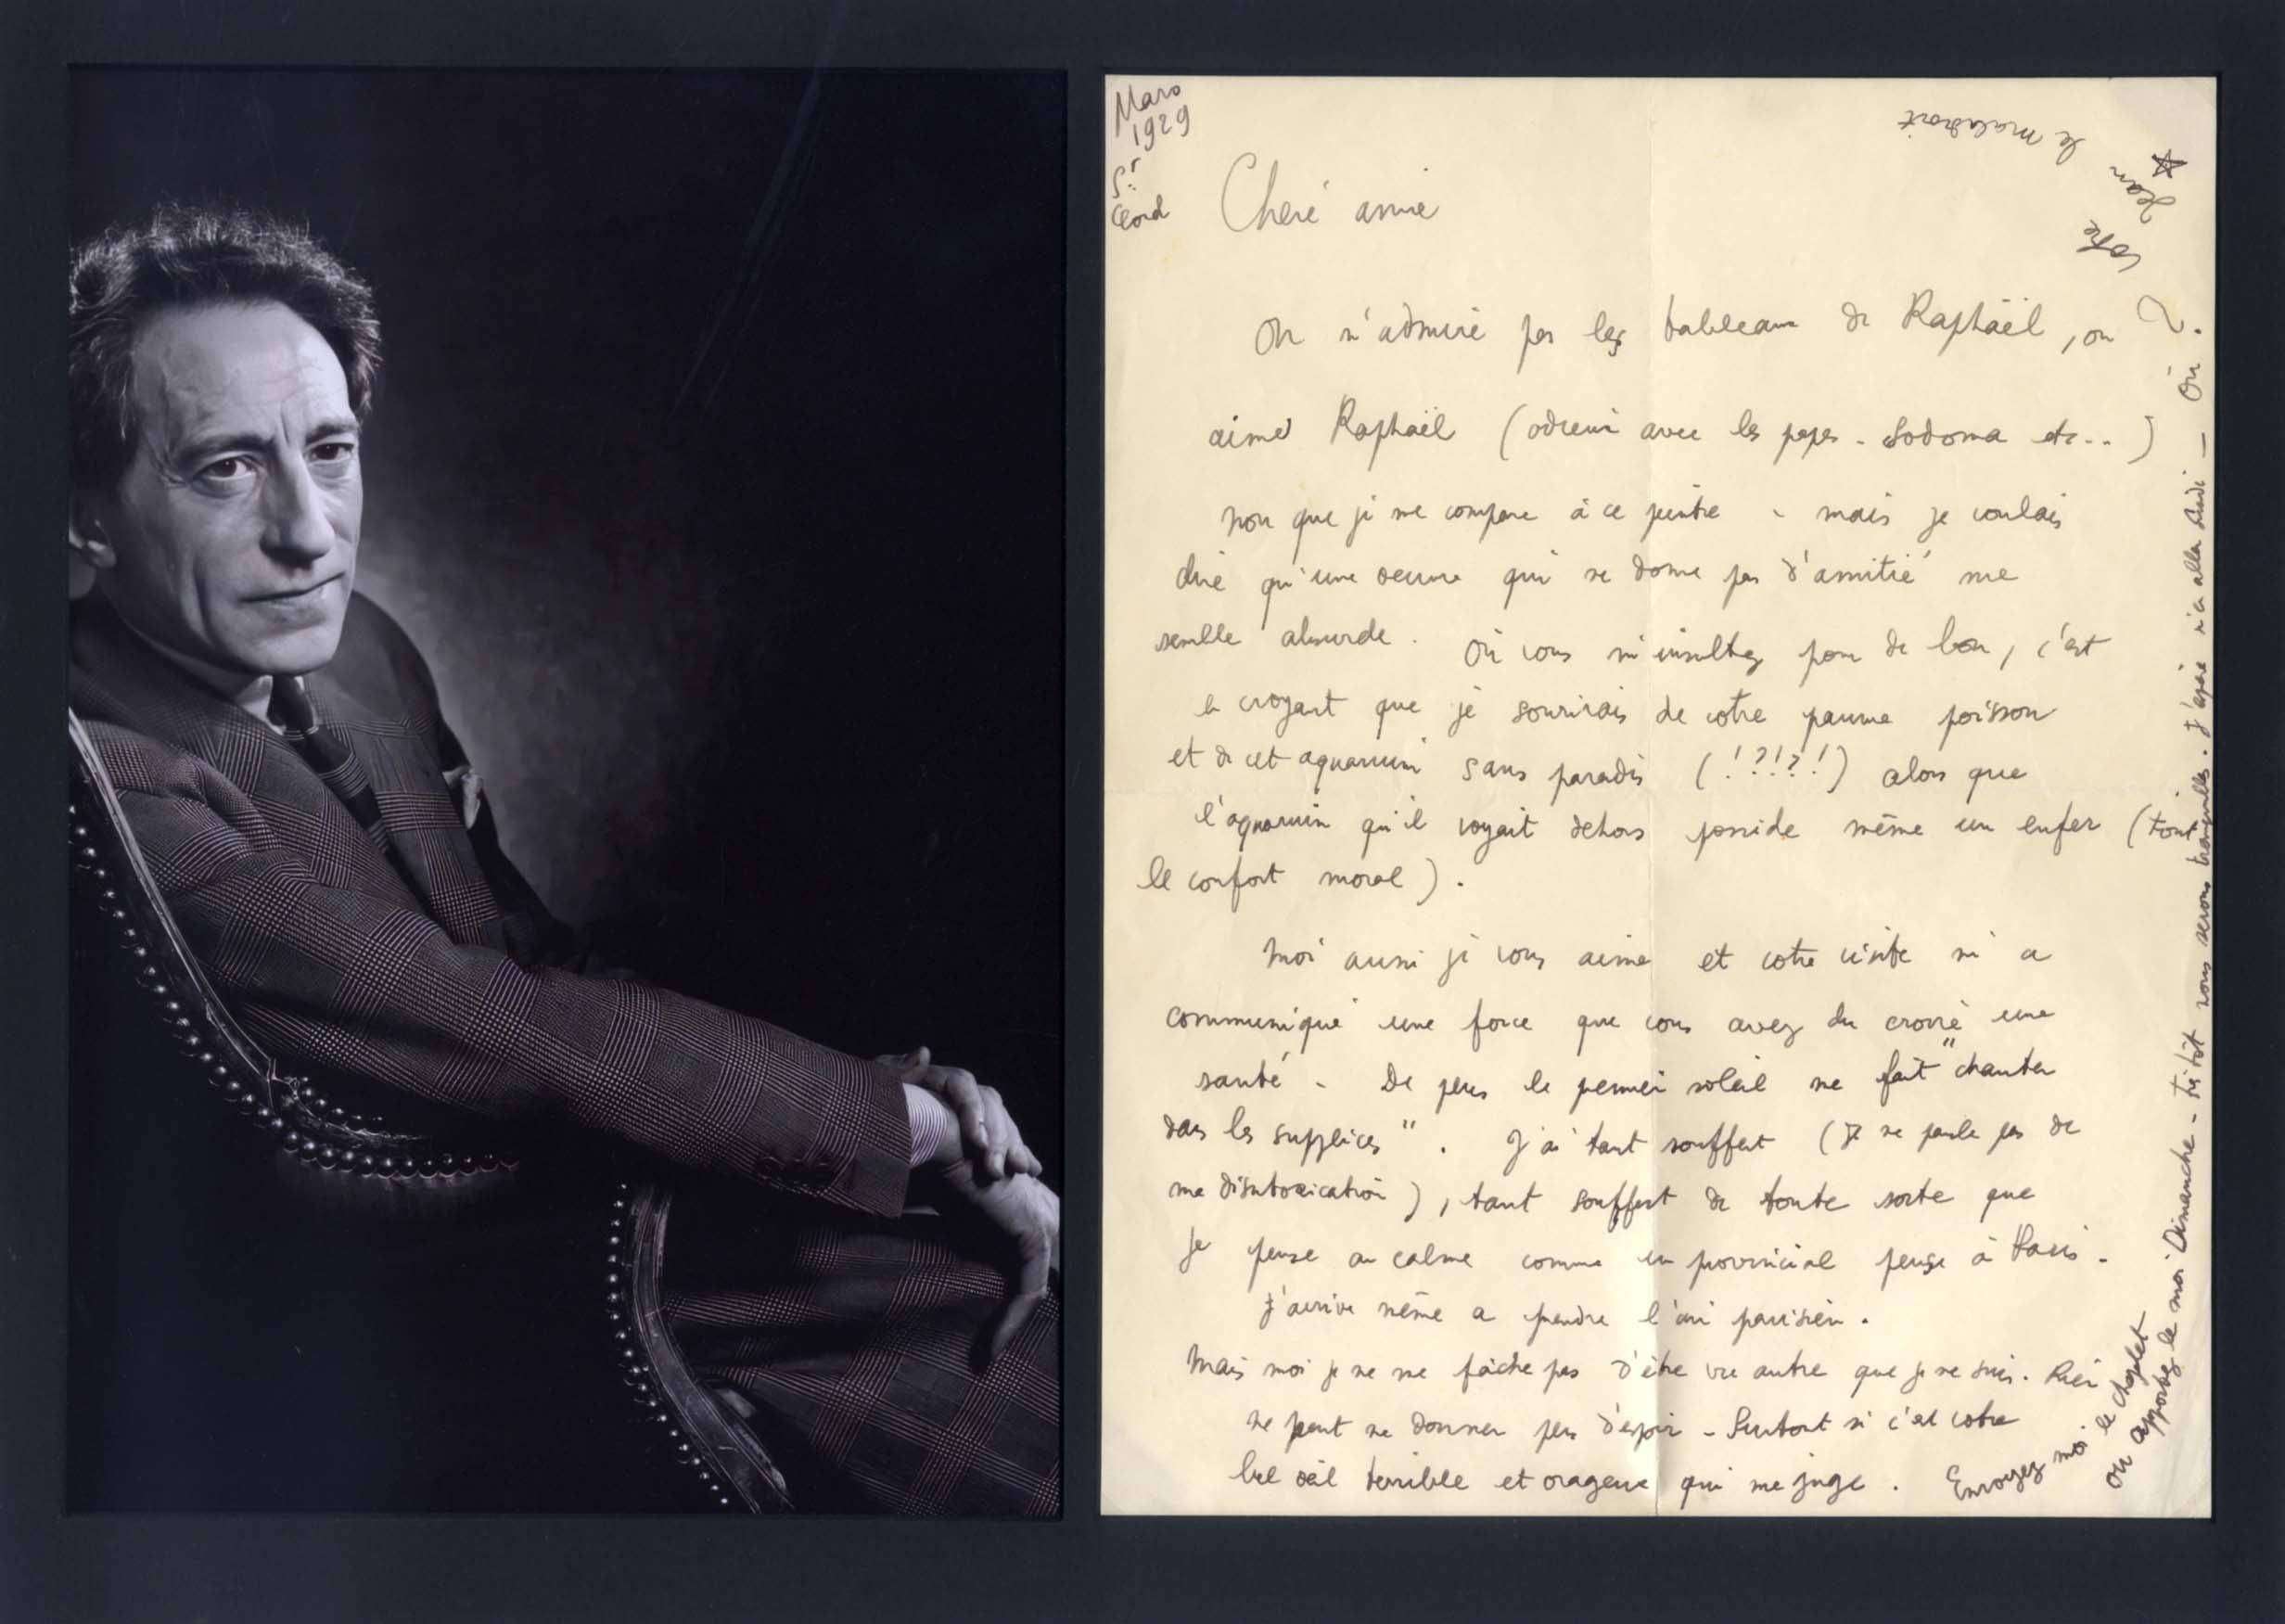 Mars
1929
St
Cloud
Chère amie
On n'admire pas les tableaux de Raphaël, on
aime Raphaël (odieux avec les papes - Sodoma etc..)
Non que je me compare à ce peintre - mais je voulais
dire qu'une oeuvre qui ne donne pas d'amitié me
semble absurde. Où vous m'insultez pour de bon, c'est
en croyant que je sourirais de votre pauvre poisson
et de cet aquarium sans paradis (!?!?!) alors que
l'aquarium qu'il voyait dehors possède même un enfer (tout
le confort moral).
Moi aussi je vous aime et votre visite m'a
communiqué une force que vous avez du croire une
santé - De plus le premier soleil me fait "chanter
dans les supplices". J'ai tant souffert (je ne parle pas de
ma désintoxication), tant souffert de toute sorte que
je pense au calme comme un provincial pense à Paris -
J'arrive même a prendre l'air parisien.
Mais moi je ne me fâche pas d'être vu autre que je ne suis. Rien
ne peut me donner plus d'espoir - Surtout si c'est votre
bel oeil terrible et orageux qui me juge. Envoyez moi le chapelet
ou apportez le moi Dimanche - très tôt nous serons tranquilles. J'espère n'a alla - Ou
2.
votre
Jean
le maladroit